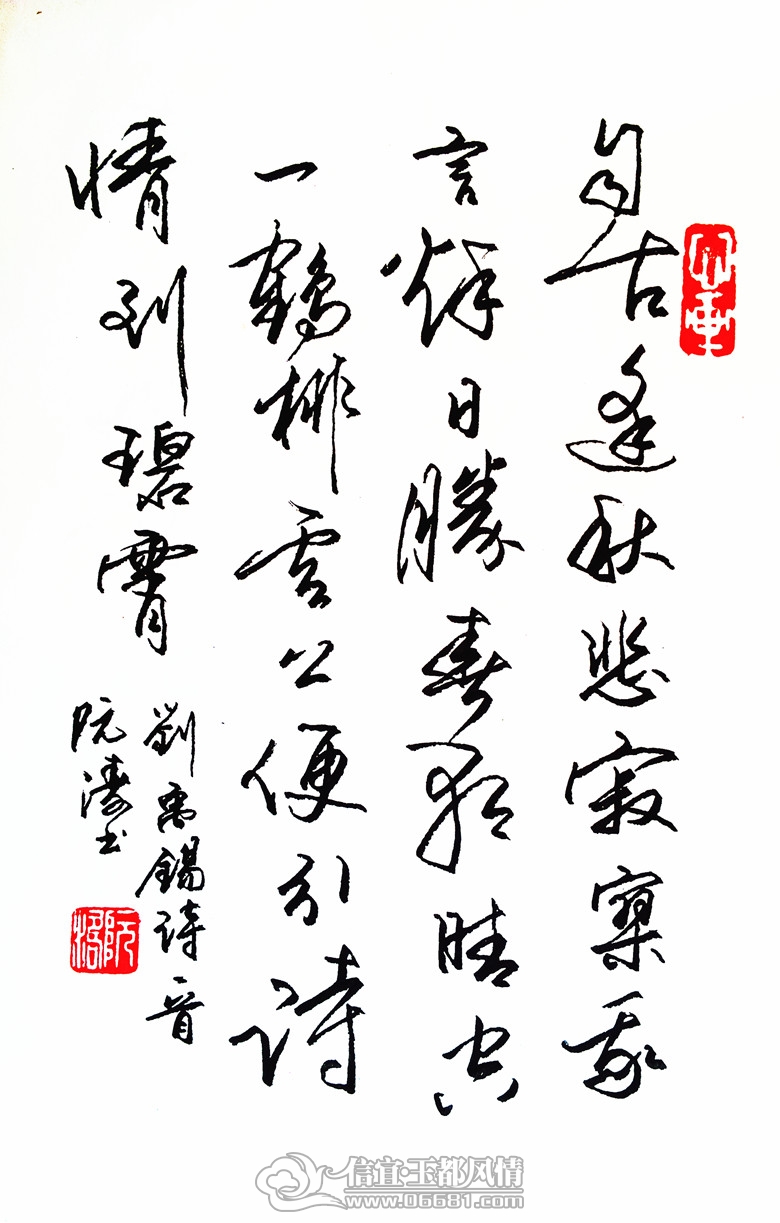 自古逢秋悲寂寞我
言秌日勝春朝晴空
一鶴排雲上便引詩
情到碧霄
劉禹錫詩一首
阮濤书
信宜·玉都风情
www.06681.com